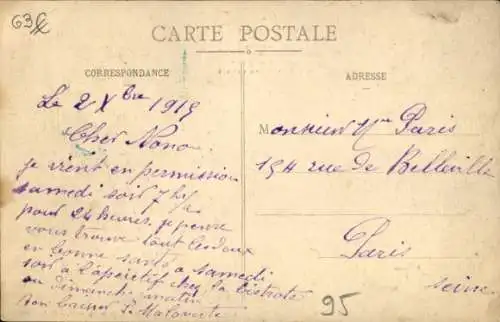 63
CARTE POSTALE
CORRESPONDANCE
ADRESSE
Le 2 Xbre 1915
Cher Nono
je vient en permission
samedi soir 7 hrs
pour 24 heures je pense
vous trouve tout les deux
en bonne santé a samedi
soir à l'apéritif chez la bistrote
ou Dimanche matin
Bon baiser
Monsieur Paris
194 rue de Belleville
Paris
Seine
95